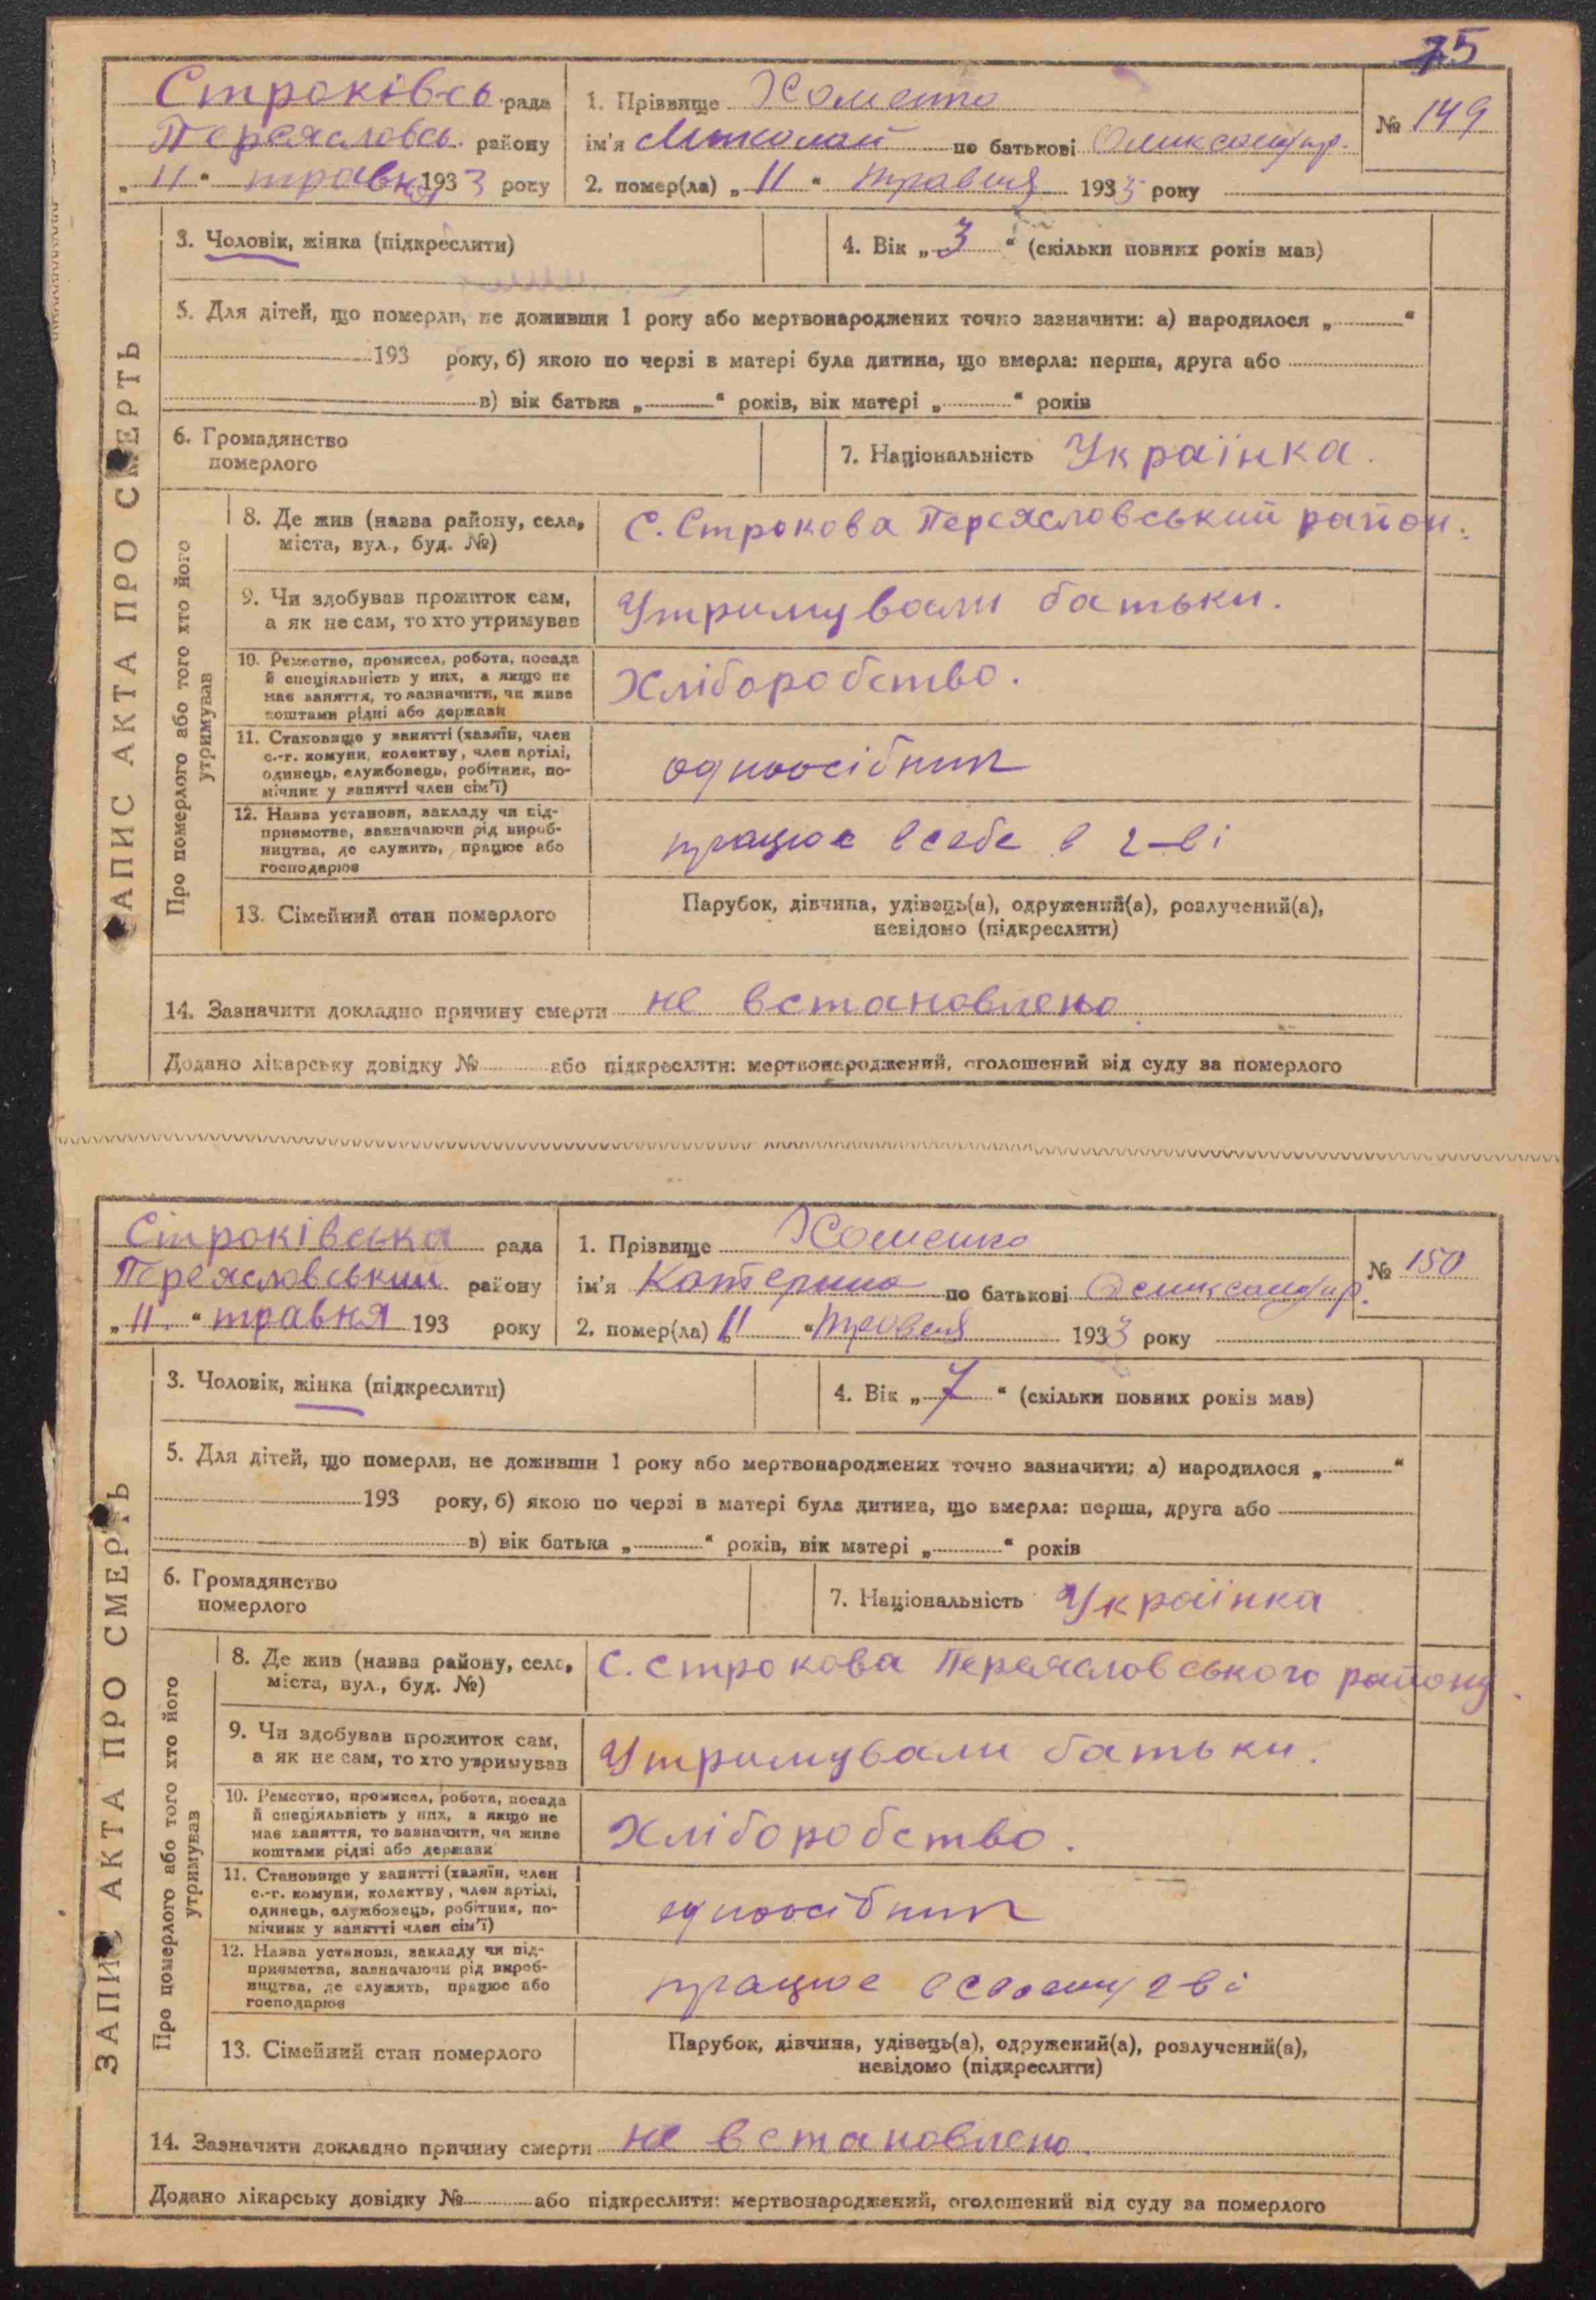 75
Строківсь рада
Переясловсь. району
„ 11 “ травня 1933 року
1. Прізвище Хоменко
ім'я Миколай по батькові Оликсандр.
2. помер(ла) „ 11 “ травня 1933 року
№ 149
3. Чоловік, жінка (підкреслити)
4. Вік „ 3 “ (скільки повних років мав)
5. Для дітей, що померли, не доживши 1 року або мертвонароджених точно зазначити: а) народилося „ “
193 року, б) якою по черзі в матері була дитина, що вмерла: перша, друга або
в) вік батька „ “ років, вік матері „ “ років
6. Громадянство
померлого
7. Національність Українка.
ЗАПИС АКТА ПРО СМЕРТЬ
Про померлого або того хто його
утримував
8. Де жив (назва району, села,
міста, вул., буд. №)
С. Строкова Переясловський район.
9. Чи здобував прожиток сам,
а як не сам, то хто утримував
Утримували батьки.
10. Ремество, промисел, робота, посада
й спеціяльність у них, а якщо не
має заняття, то зазначити, чи живе
коштами рідні або держави
Хліборобство.
11. Становище у занятті (хазяїн, член
с.-г. комуни, колективу, член артілі,
одинець, службовець, робітник, по-
мічник у занятті член сім'ї)
одноосібник
12. Назва установи, закладу чи під-
приємства, зазначаючи рід вироб-
ництва, де служить, працює або
господарює
працює в себе в г-ві
13. Сімейний стан померлого
Парубок, дівчина, удівець(а), одружений(а), розлучений(а),
невідомо (підкреслити)
14. Зазначити докладно причину смерти не встановлено
Додано лікарську довідку № або підкреслити: мертвонароджений, оголошений від суду за померлого
Строківська рада
Переясловський району
„ 11 “ травня 193 року
1. Прізвище Хоменко
ім'я Катерина по батькові Оликсандр.
2. помер(ла) „ 11 “ травня 1933 року
№ 150
3. Чоловік, жінка (підкреслити)
4. Вік „ 7 “ (скільки повних років мав)
5. Для дітей, що померли, не доживши 1 року або мертвонароджених точно зазначити: а) народилося „ “
193 року, б) якою по черзі в матері була дитина, що вмерла: перша, друга або
в) вік батька „ “ років, вік матері „ “ років
6. Громадянство
померлого
7. Національність Українка
ЗАПИС АКТА ПРО СМЕРТЬ
Про померлого або того хто його
утримував
8. Де жив (назва району, села,
міста, вул., буд. №)
С. Строкова Переясловського району.
9. Чи здобував прожиток сам,
а як не сам, то хто утримував
Утримували батьки.
10. Ремество, промисел, робота, посада
й спеціяльність у них, а якщо не
має заняття, то зазначити, чи живе
коштами рідні або держави
Хліборобство.
11. Становище у занятті (хазяїн, член
с.-г. комуни, колективу, член артілі,
одинець, службовець, робітник, по-
мічник у занятті член сім'ї)
одноосібник
12. Назва установи, закладу чи під-
приємства, зазначаючи рід вироб-
ництва, де служить, працює або
господарює
працює в своему г ві
13. Сімейний стан померлого
Парубок, дівчина, удівець(а), одружений(а), розлучений(а),
невідомо (підкреслити)
14. Зазначити докладно причину смерти не встановлено.
Додано лікарську довідку № або підкреслити: мертвонароджений, оголошений від суду за померлого